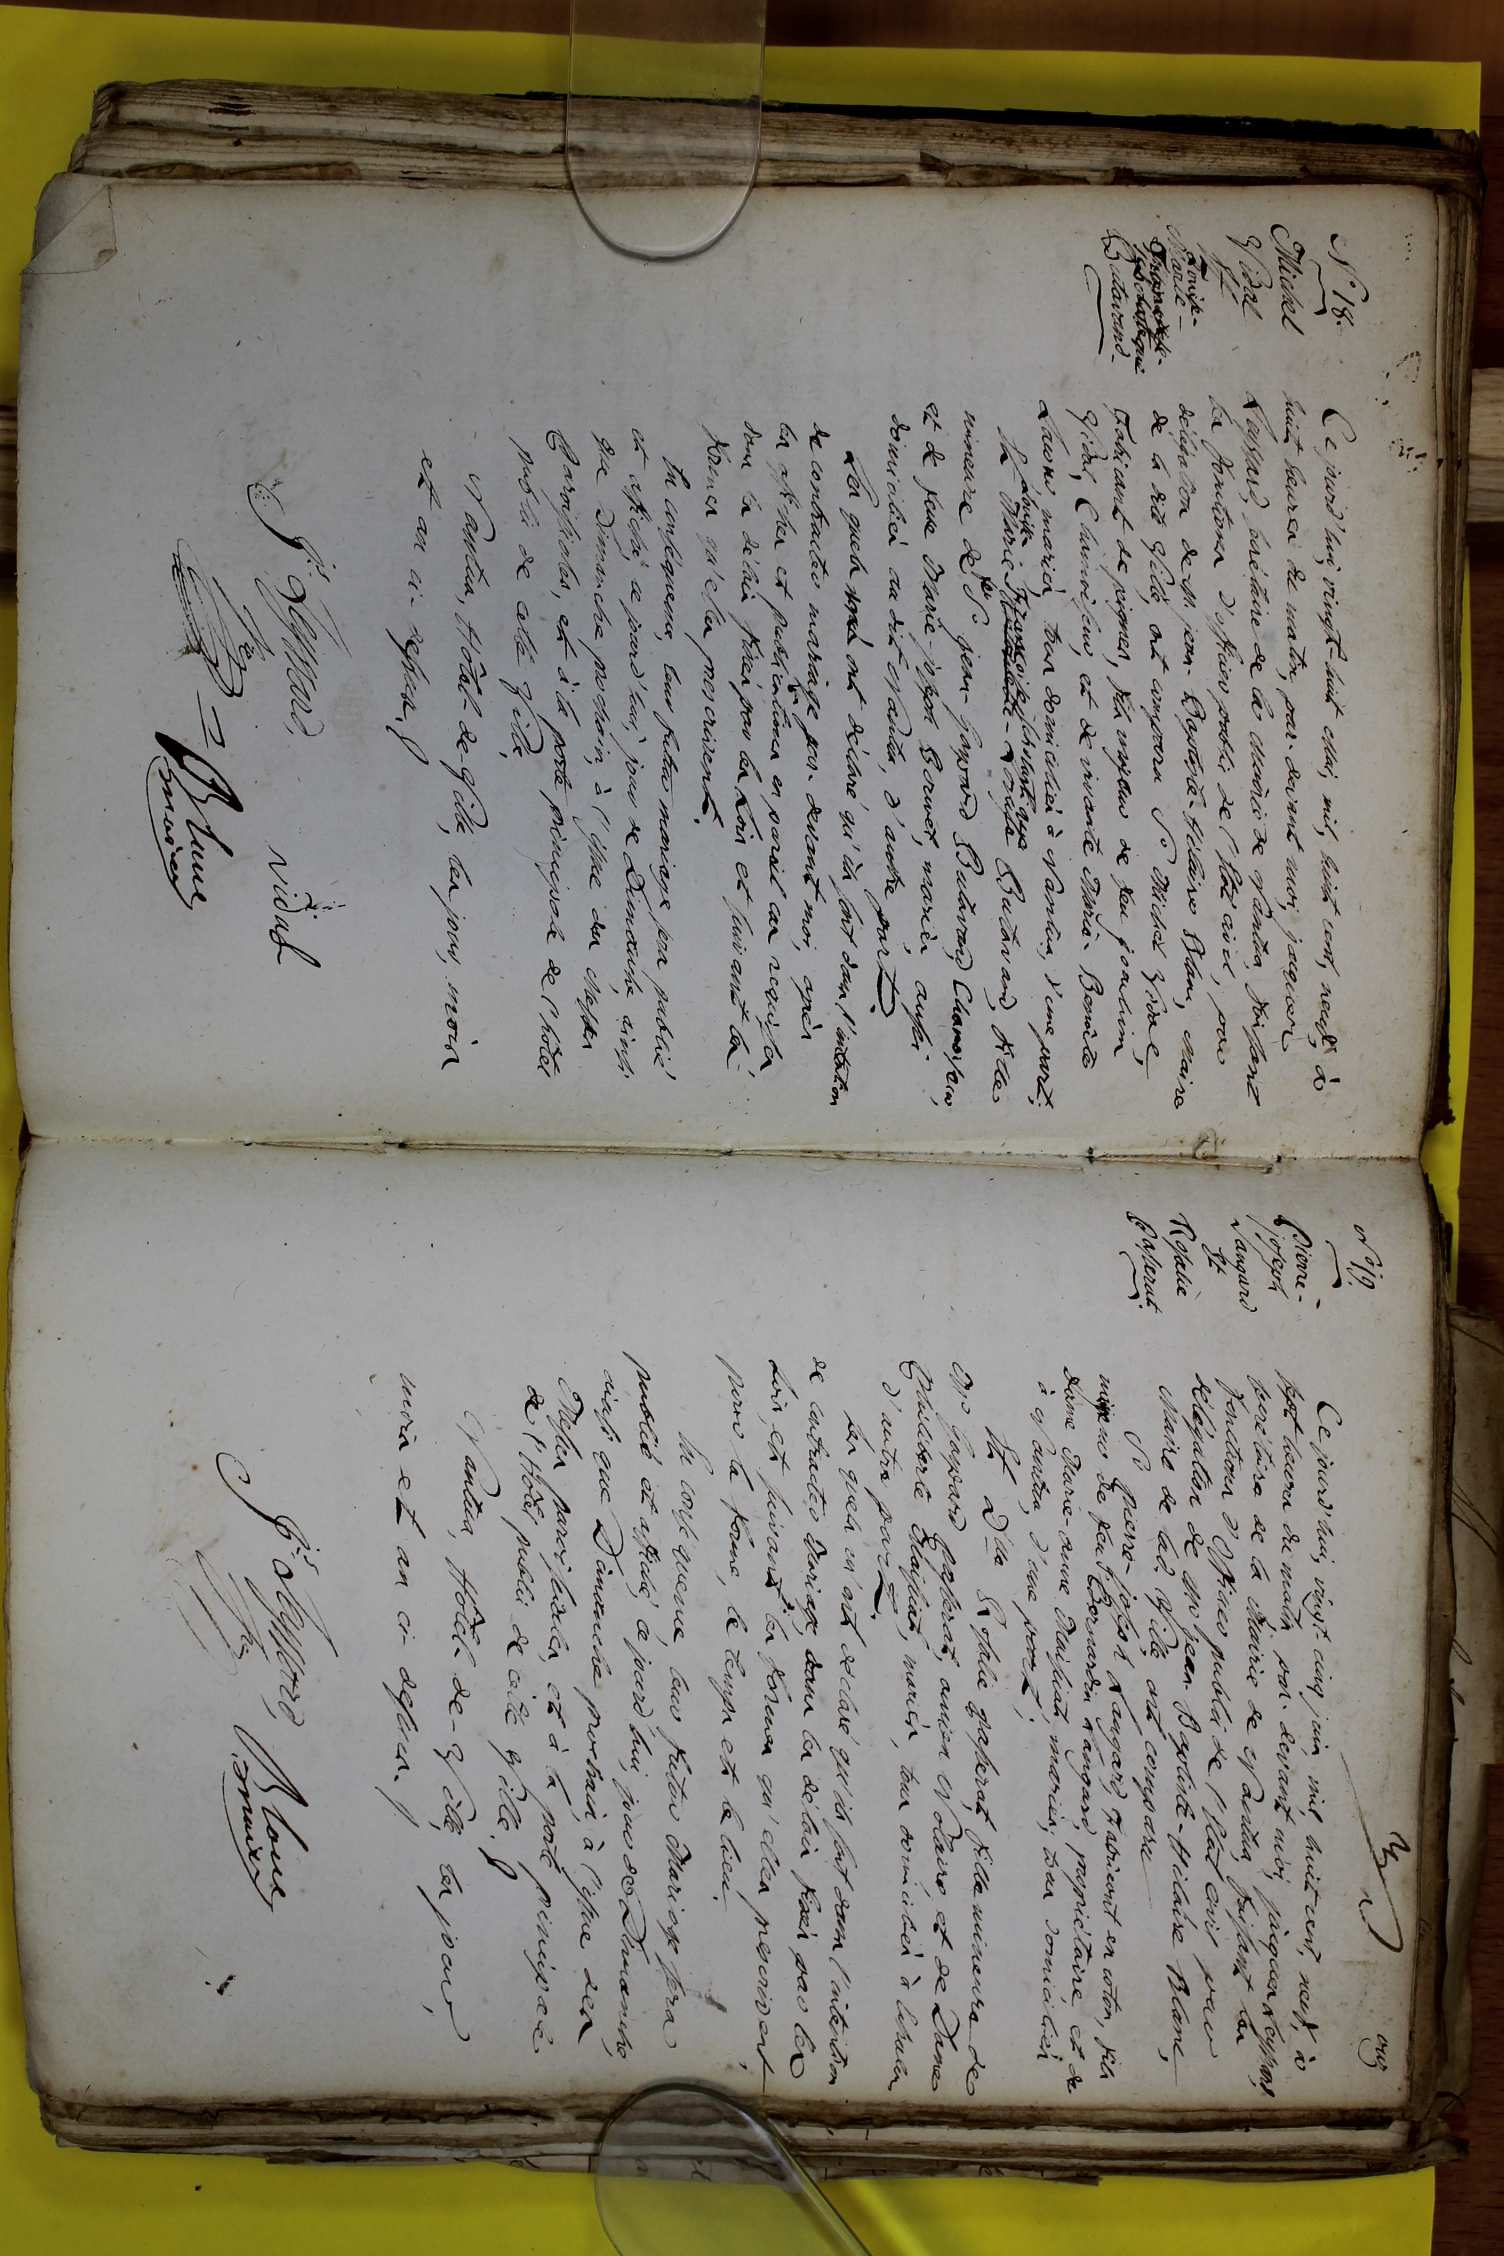 N.º 18.
Michel
Vidal
Et
Louise-
Marie-
Françoise-
Scholastique
Butavand-
Ce jourd'hui, vingt-huit mai, mil, huit cent, neuf, à
huit heures du matin, par-devant moi, jacques
Leyssard, secrétaire de la mairie de Nantua, faisant
les fonctions d'officier public de l'Etat civil, par
délégation de M. jean-Baptiste-Hilaire Blanc, Maire
de la dite Ville, ont comparu Sr. Michel Vidal,
Fabricant de peignes, fils majeur de feu joachim
Vidal, Chamoiseur, et de vivante Maria-Benoite
mariés, tous domiciliés à Nantua, d'une part;
Et Louise-Marie Françoise Scholastique Butavand, fille
mineure de feu Sr. jean-Gaspard Butavand, Chamoiseur,
et de feue Marie-joseph Cornet, mariés aussi
domiciliés au dit Nantua, d'autre part.
Les quels ont déclaré qu'ils sont dans l'intention
de contracter mariage par-devant moi, après
les affiches et publications en pareil cas requises
dans les délais fixés par les Loix et suivant les
formes qu'elles prescrivent.
En conséquence, leur futur mariage sera publié
et affiché, ce jourd'hui, jour de Dimanche, ainsi
que Dimanche prochain, à l'issue des Messes
Paroissiales, et à la porte principale de l'hôtel
public de cette Ville.
Nantua, Hôtel-de-Ville, les jour, mois
et an ci-dessus.
Js. Leyssard,
Vidal
Sre.
Blanc
maire
N.º 19.
Pierre-
joseph
Laugard
Et
Rosalie
Passerat.
Ce jourd'hui, vingt-cinq juin, mil, huit cent, neuf, à
sept heures du matin, par-devant moi, jacques Leyssard,
secrétaire de la Mairie de Nantua, faisant les
fonctions d'Officier public de l'Etat civil, par
délégation de Mr. jean-Baptiste-Hilaire Blanc,
Maire de lad. Ville, ont comparu
Sr. Pierre-joseph Laugard, Fabricant en coton, fils
majeur de feu Bernardin Laugard, propriétaire, et de
Dame Marie-anne Maissiat, mariés, tous domiciliés
à Nantua, d'une part;
Et Dlle. Rosalie Passerat, fille mineure de
Mr. Gaspard Passerat, ancien Notaire et de Dame
Philiberte Maissiat, mariés, tous domiciliés à
d'autre part.
Les quels m'ont déclaré qu'ils sont dans l'intention
de contracter Mariage, dans les délais fixés par les
Loix, et suivant les formes qu'elles prescrivent
pour la forme, le temps et le lieu.
En conséquence, leur futur Mariage sera
publié et affiché, ce jourd'hui, jour de Dimanche,
ainsi que Dimanche prochain, à l'issue des
Messes paroissiales, et à la porte principale
de l'Hôtel public de cette Ville.
Nantua, Hôtel-de-Ville, les jour,
mois et an ci-dessus.
Js. Leyssard,
Sre.
Blanc
maire